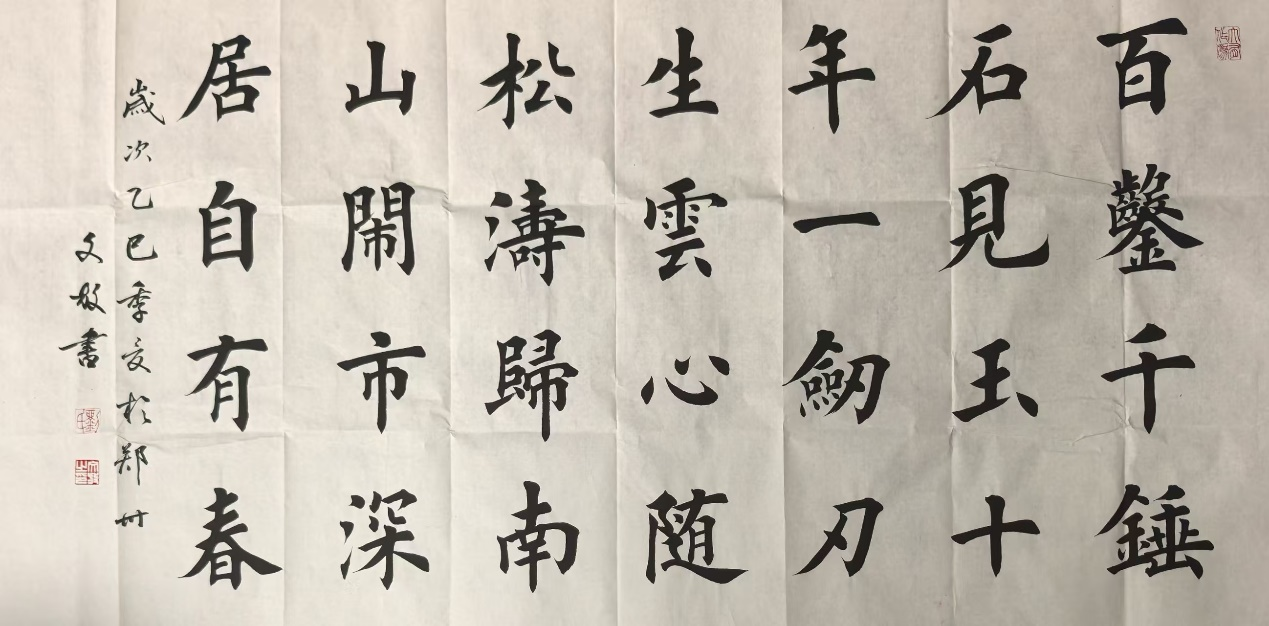 百鑿千錘
石見玉十
年一劒刃
生雲心随
松濤歸南
山閙市深
居自有春
歳次乙巳季夏於郑州
文敏書